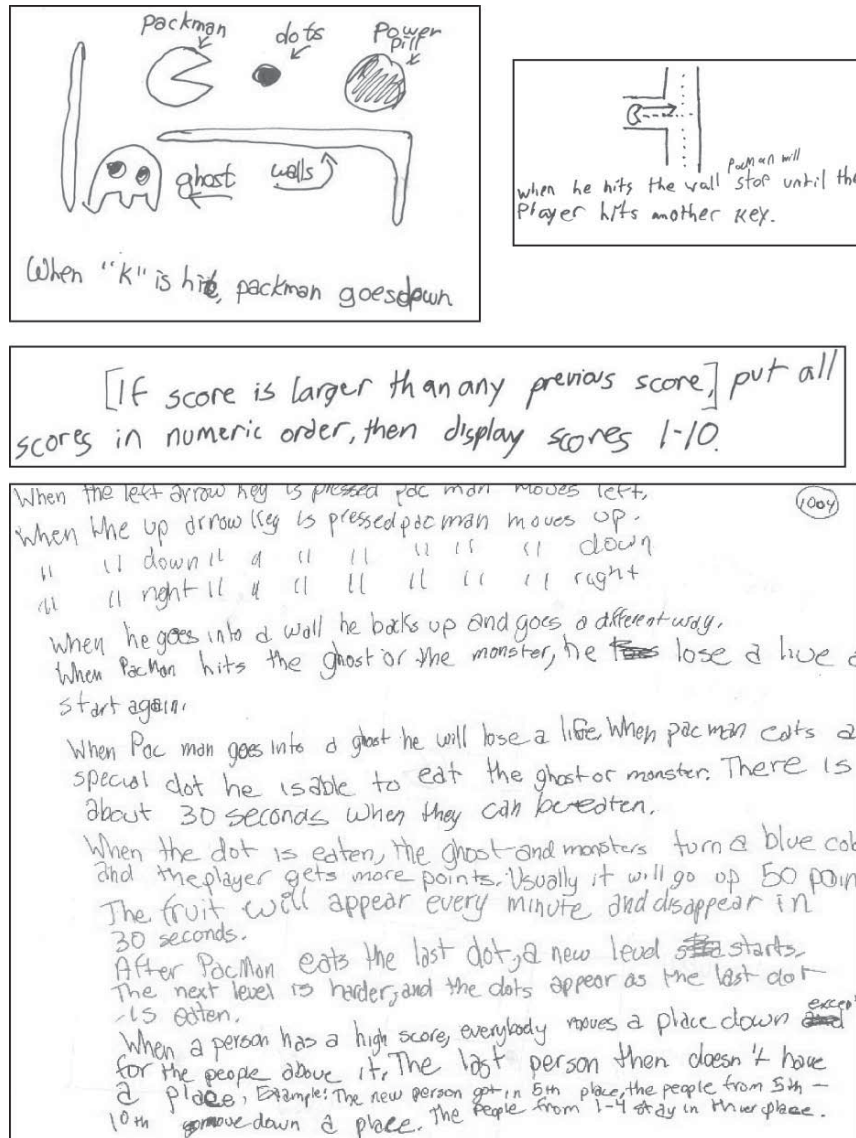 Packman
dots
Power
pill
ghost
walls
When "K" is hit, packman goes down
pacman will
when he hits the wall stop until the
Player hits another key.
[If score is larger than any previous score,] put all
scores in numeric order, then display scores 1-10.
When the left arrow key is pressed pac man moves left.
1004
When the up arrow key is pressed pac man moves up.
" " down " " " " " " " down
" " right " " " " " " " right
When he goes into a wall he backs up and goes a different way.
When PacMan hits the ghost or the monster, he lose a live a
start again.
When Pac man goes into a ghost he will lose a life. When pac man eats a
special dot he is able to eat the ghost or monster. There is
about 30 seconds when they can be eaten.
When the dot is eaten, the ghost and monsters turn a blue colo
and the player gets more points. Usually it will go up 50 poin
The fruit will appear every minute and disappear in
30 seconds.
After PacMan eats the last dot, a new level starts.
The next level is harder, and the dots appear as the last dot
is eaten.
except
When a person has a high score, everybody moves a place down
for the people above it. The last person then doesn't have
a place, Example: The new person got in 5th place, the people from 5th -
10th move down a place. The people from 1-4 stay in thier place.